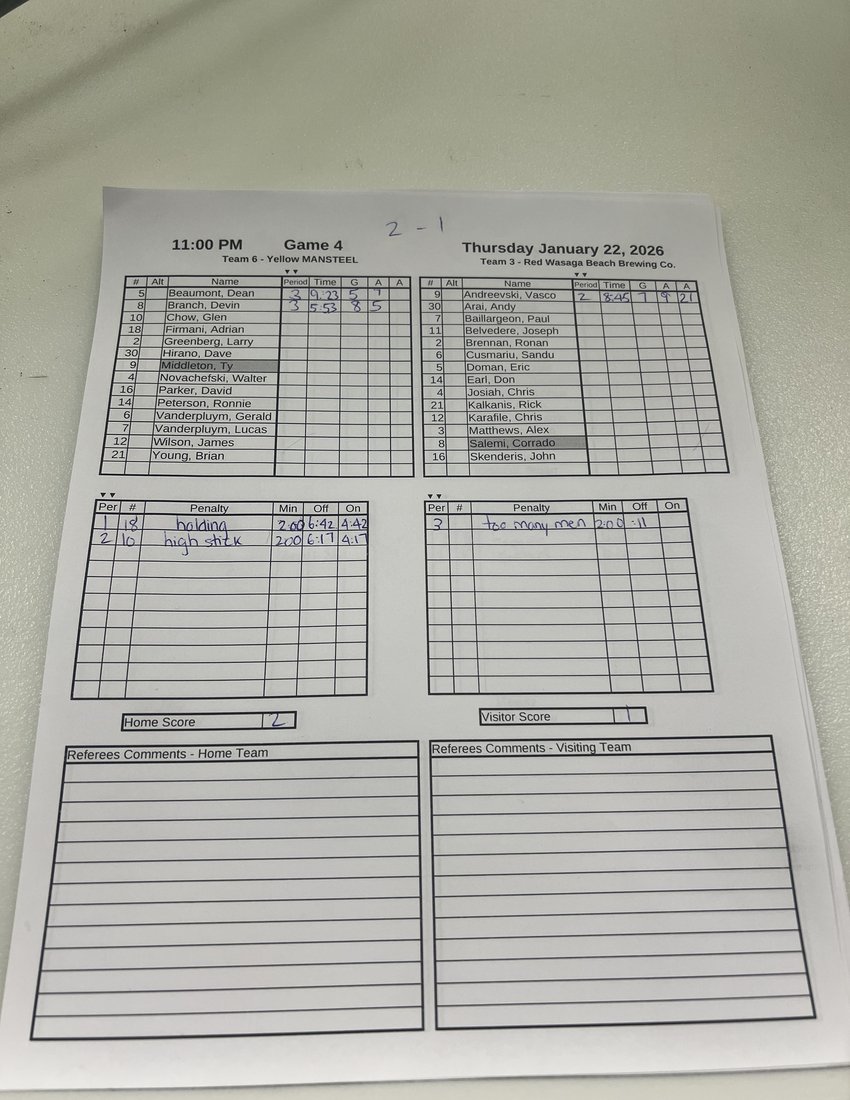 2 - 1
11:00 PM Game 4 Thursday January 22, 2026
Team 6 - Yellow MANSTEEL
Team 3 - Red Wasaga Beach Brewing Co.
# Alt Name Period Time G A A
5 Beaumont, Dean 3 9:23 5 7
8 Branch, Devin 3 5:53 8 5
10 Chow, Glen
18 Firmani, Adrian
2 Greenberg, Larry
30 Hirano, Dave
9 Middleton, Ty
4 Novachefski, Walter
16 Parker, David
14 Peterson, Ronnie
6 Vanderpluym, Gerald
7 Vanderpluym, Lucas
12 Wilson, James
21 Young, Brian
# Alt Name Period Time G A A
9 Andreevski, Vasco 2 8:45 7 9 21
30 Arai, Andy
7 Baillargeon, Paul
11 Belvedere, Joseph
2 Brennan, Ronan
6 Cusmariu, Sandu
5 Doman, Eric
14 Earl, Don
4 Josiah, Chris
21 Kalkanis, Rick
12 Karafile, Chris
3 Matthews, Alex
8 Salemi, Corrado
16 Skenderis, John
Per # Penalty Min Off On
1 18 holding 2:00 6:42 4:42
2 10 high stick 200 6:17 4:17
Per # Penalty Min Off On
3 too many men 2:00 :11
Home Score 2
Visitor Score 1
Referees Comments - Home Team
Referees Comments - Visiting Team